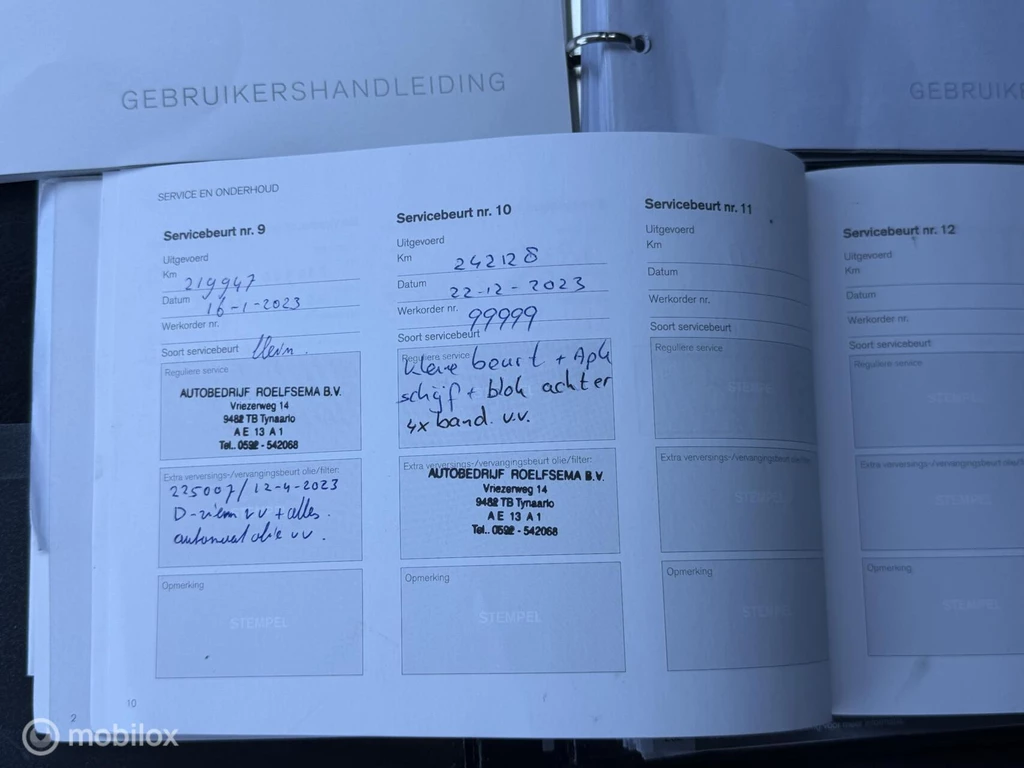 GEBRUIKERSHANDLEIDING
GEBRUIKE
SERVICE EN ONDERHOUD
Servicebeurt nr. 9
Uitgevoerd
Km 219947
Datum 16-1-2023
Werkorder nr.
Soort servicebeurt klein.
Reguliere service
AUTOBEDRIJF ROELFSEMA B.V.
Vriezerweg 14
9482 TB Tynaarlo
A E 13 A 1
Tel.. 0592 - 542068
Extra verversings-/vervangingsbeurt olie/filter:
225007/12-4-2023
D-riem vv + alles.
automaat olie vv.
Opmerking
STEMPEL
10
2
Servicebeurt nr. 10
Uitgevoerd
Km 242128
Datum 22-12-2023
Werkorder nr. 99999
Soort servicebeurt
Reguliere service
kleine beurt + Apk
schijf + blok achter
4x band. v.v.
Extra verversings-/vervangingsbeurt olie/filter:
AUTOBEDRIJF ROELFSEMA B.V.
Vriezerweg 14
9482 TB Tynaarlo
A E 13 A 1
Tel.. 0592 - 542068
Opmerking
STEMPEL
Servicebeurt nr. 11
Uitgevoerd
Km
Datum
Werkorder nr.
Soort servicebeurt
Reguliere service
STEMPEL
Extra verversings-/vervangingsbeurt olie/filter:
STEMPEL
Opmerking
STEMPEL
Servicebeurt nr. 12
Uitgevoerd
Km
Datum
Werkorder nr.
Soort servicebeurt
Reguliere service
STEMPEL
Extra verversings-/vervangingsbeurt olie/filter:
STEMPEL
Opmerking
STEMPEL
mobilox